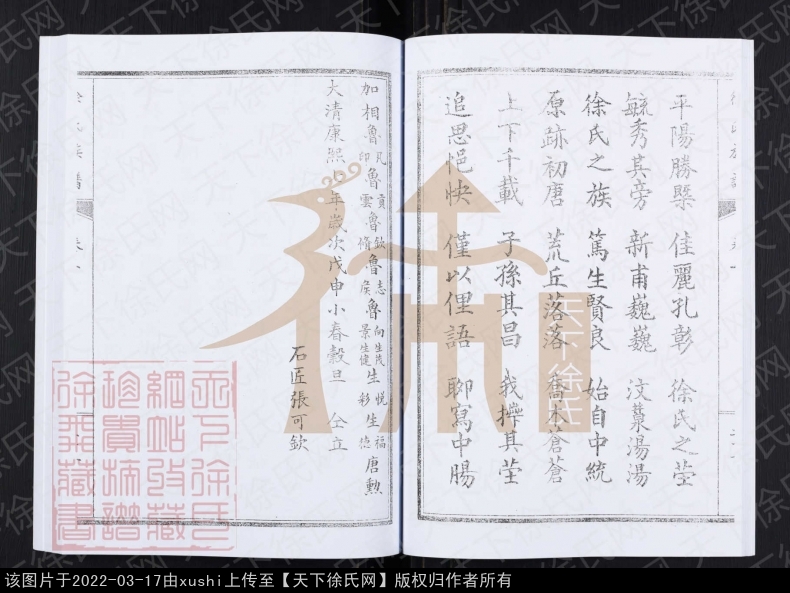 平陽勝槩 佳麗孔彰 徐氏之塋
毓秀其旁 新甫巍巍 汶蕖湯湯
徐氏之族 篤生賢良 始自中統
原跡初唐 荒丘落落 喬木蒼蒼
上下千載 子孫其昌 我擰其塋
追思悒怏 僅以俚語 聊寫中腸
加相魯 凡印 魯 貢雲 魯 欽脩 魯 志 魯 向生茂 景生健 生 悅彩 生 福德 唐勲
大清康熙 年歲次戊申小春穀旦 仝立
石匠張可欽
徐氏族譜
卷一
天下徐氏
永天下徐氏網站收藏珍貴族譜徐典藏書
天下徐氏网
该图片于2022-03-17由xushi上传至【天下徐氏网】版权归作者所有